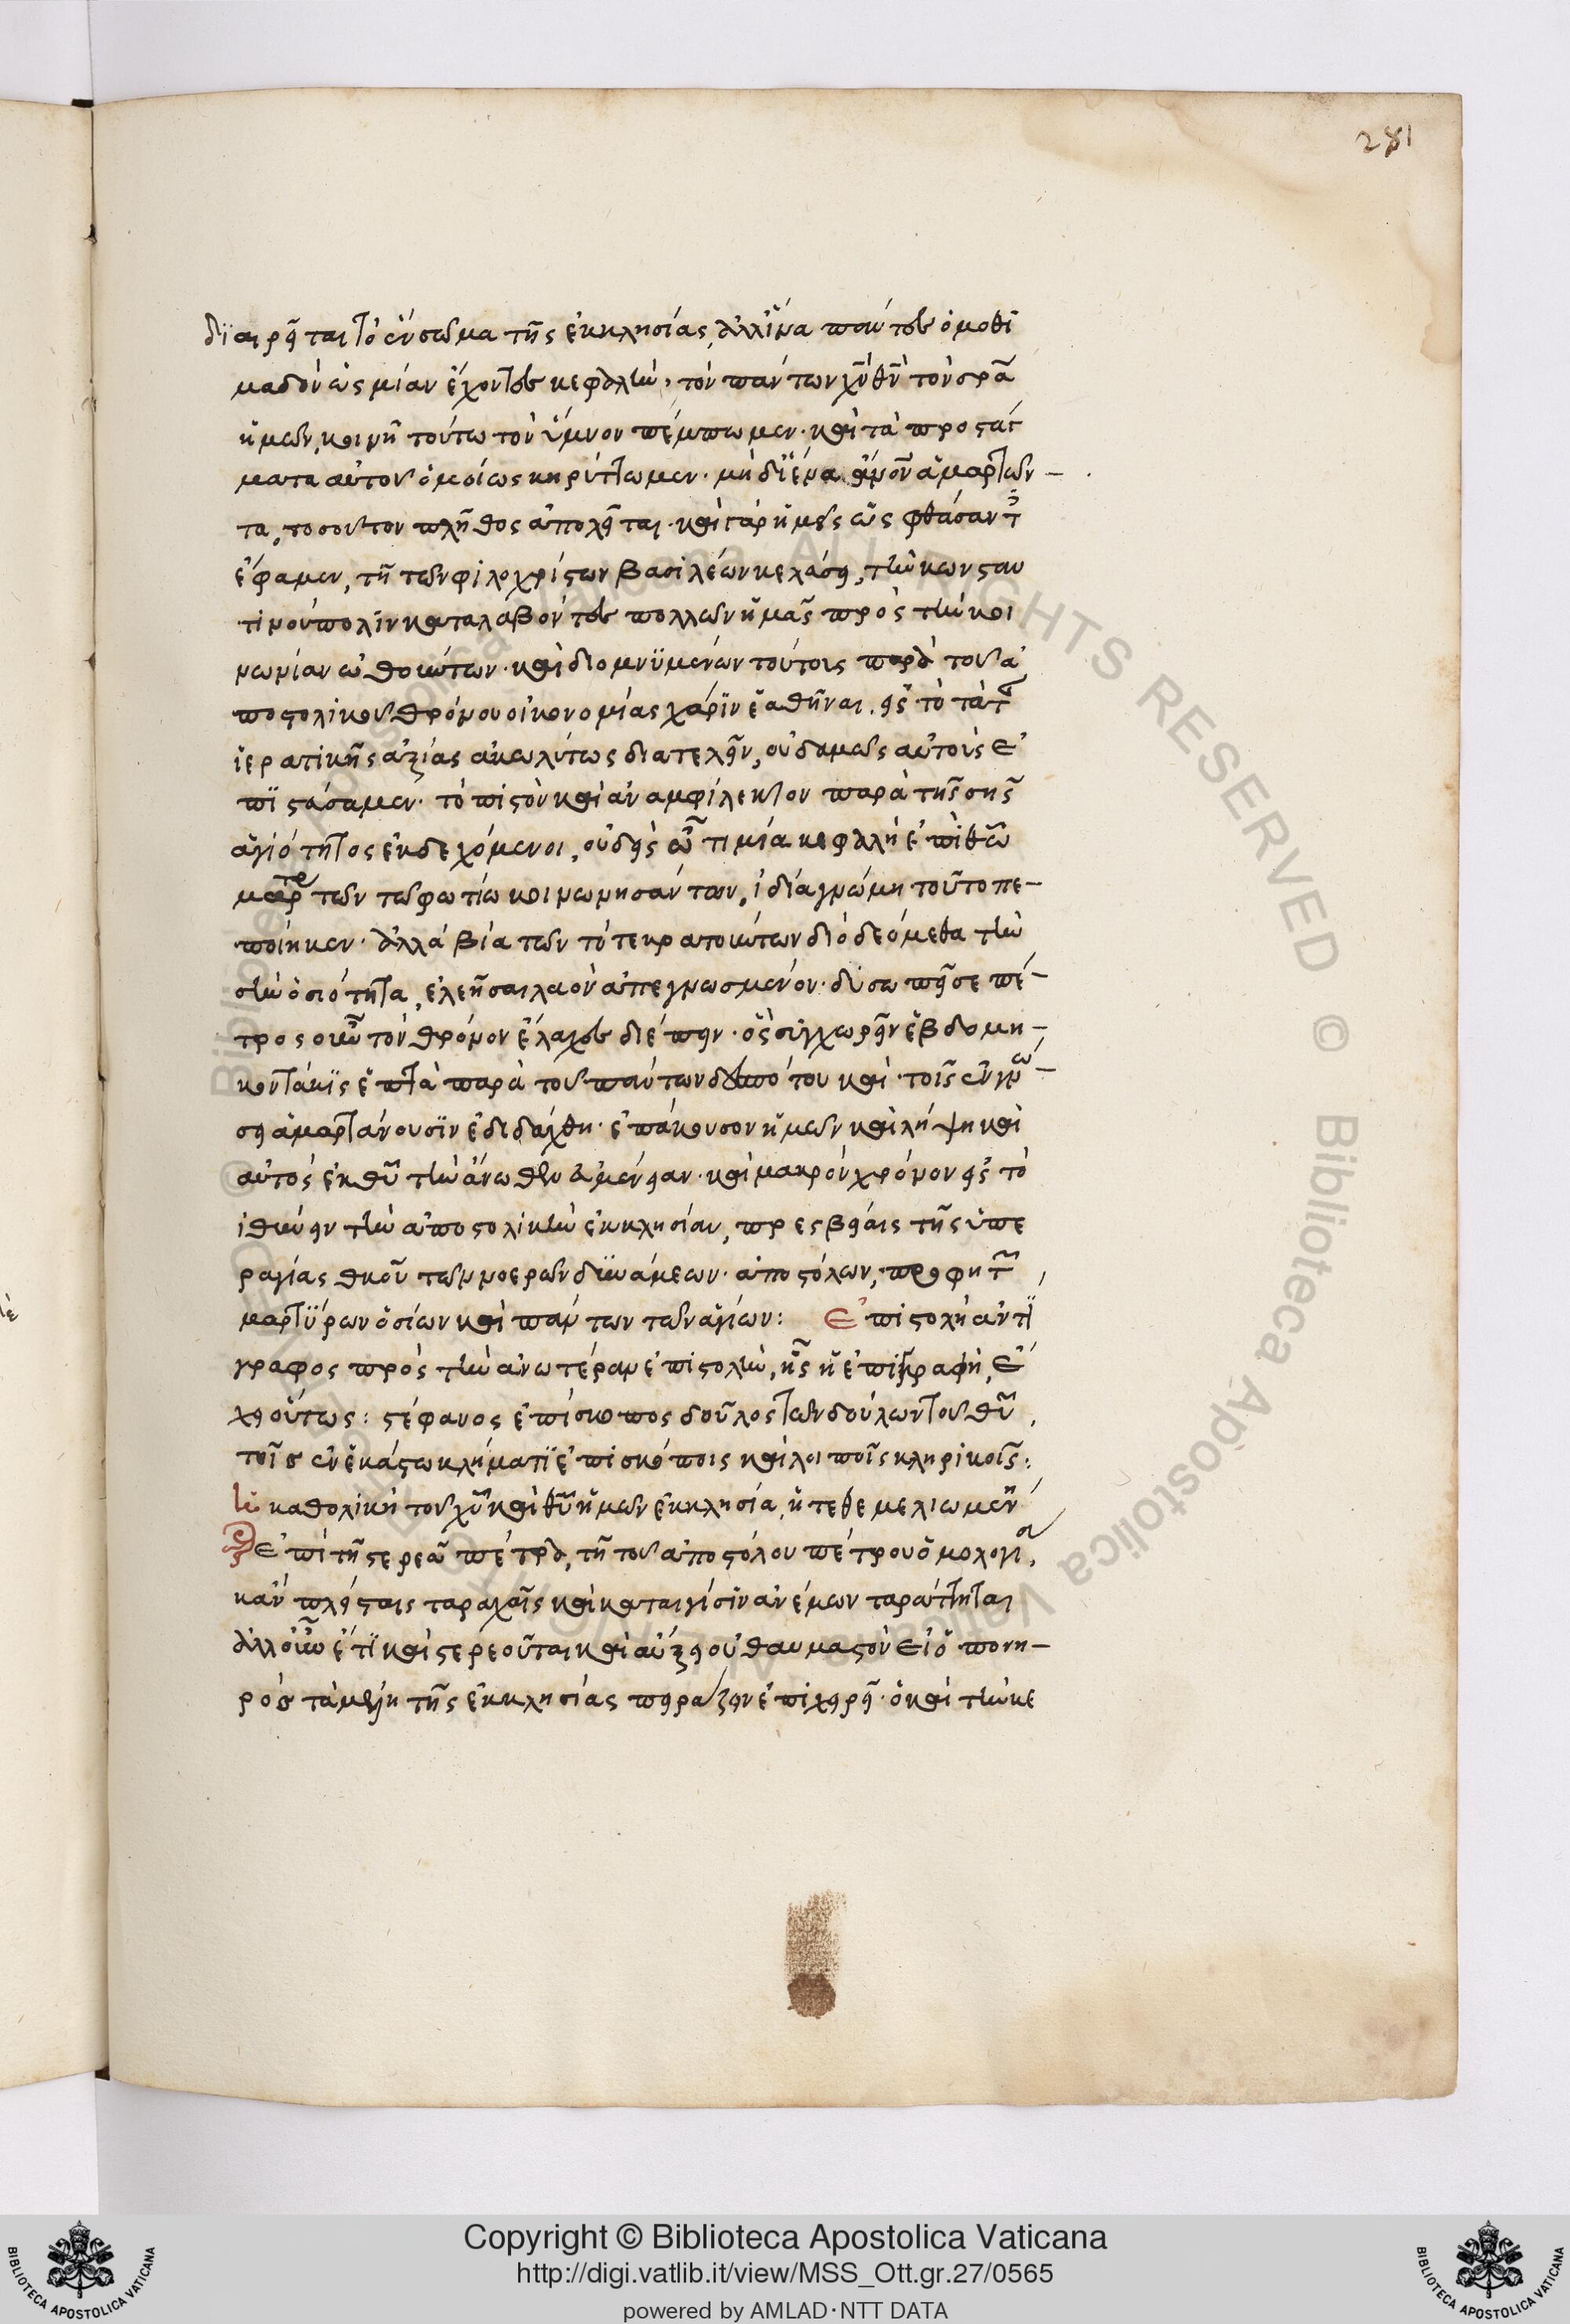 281
διαιρεῖται τὸ ἓν σῶμα τῆς ἐκκλησίας, ἀλλ' ἵνα πάντες ὁμοθι
μαδὸν ὡς μίαν ἔχοντες κεφαλὴν, τὸν πάντων χ̅ν̅ θ̅ν̅ τὸν σρ̅α̅
ἡμῶν, κοινῇ τούτω τὸν ὕμνον πέμπωμεν· καὶ τὰ προστάγ
ματα αὐτοῦ ὁμοίως κηρύττωμεν· μὴ δι' ἕνα μόνον ἁμαρτών-
τα, τοσοῦτον πλῆθος ἀπολεῖται· καὶ γὰρ ἡμεῖς ὡς φθάσαντ
ἔφαμεν, τῇ τῶν φιλοχρίστων βασιλέων κελεύσει, τὴν κωνσταν
τινούπολιν καταλαβόντες πολλῶν ἡμᾶς πρὸς τὴν κοι
νωνίαν ὠθούντων· καὶ διομνυμένων τούτοις παρὰ τοῦ ἀ
ποστολικοῦ θρόνου οἰκονομίας χάριν ἐαθῆναι. εἰς τὸ τὰ τ
ἱερατικῆς ἀξίας ἀκωλύτως διατελεῖν, οὐδαμῶς αὐτοὺς ἐ
πιστάσαμεν· τὸ πιστὸν καὶ ἀναμφίλεκτον παρὰ τῆς σῆς
ἁγιότητος ἐκδεχόμενοι, οὐδεὶς οὖν τιμία κεφαλὴ ἐπὶ θ̅ω̅
μάρτυρ τῶν τῶ φωτίω κοινωνησάντων, ἰδία γνώμη τοῦτο πε-
ποίηκεν· ἀλλὰ βία τῶν τότε κρατούντων διὸ δεόμεθα τὴν
σὴν ὁσιότητα, ἐλεῆσαι λαὸν ἀπεγνωσμένον· δυσωπεῖ σε πέ-
τρος οὗ νῦν τὸν θρόνον ἔλαχες διέπειν· ὃς συγχωρεῖν ἑβδομη-
κοντάκις ἑπτὰ παρὰ τοῦ πάντων δεσπότου καὶ τοῖς ἐν γνώ-
σει ἁμαρτάνουσιν ἐδιδάχθη· ἐπάκουσον ἡμῶν καὶ λήψη καὶ
αὐτὸς ἐκ θ̅υ̅ τὴν ἄνωθεν εὐμένειαν· καὶ μακρὸν χρόνον εἰς τὸ
ἰθύνειν τὴν ἀποστολικὴν ἐκκλησίαν, πρεσβείαις τῆς ὑπε
ραγίας θ̅κ̅ο̅υ̅ τῶν νοερῶν δυνάμεων· ἀποστόλων, προφητ,
μαρτύρων ὁσίων καὶ πάντων τῶν ἁγίων: Ἐπιστολὴ ἀντί
γραφος πρὸς τὴν ἀνωτέραν ἐπιστολὴν, ἧς ἡ ἐπιγραφὴ, ἔ
χει οὕτως: στέφανος ἐπίσκοπος δοῦλος τῶν δούλων τοῦ θ̅υ̅,
τοῖς ἐν ἑκάστω κλήματι ἐπισκόποις καὶ λοιποῖς κληρικοῖς:
Ἡ καθολικὴ τοῦ χ̅υ̅ καὶ θ̅υ̅ ἡμῶν ἐκκλησία, ἡ τεθεμελιωμέν
ἐπὶ τῇ στερεᾶ πέτρα, τῇ τοῦ ἀποστόλου πέτρου ὁμολογία,
κἂν πλείσταις ταραχαῖς καὶ καταιγίσιν ἀνέμων ταράττηται
ἀλλ' οὖν ἔτι καὶ στερεοῦται καὶ αὔξει οὐ θαυμαστὸν εἰ ὁ πονη-
ρὸς τὰ μέλη τῆς ἐκκλησίας πειράζειν ἐπιχειρεῖ· ὁ καὶ τὴν κε
Copyright © Biblioteca Apostolica Vaticana
http://digi.vatlib.it/view/MSS_Ott.gr.27/0565
powered by AMLAD·NTT DATA